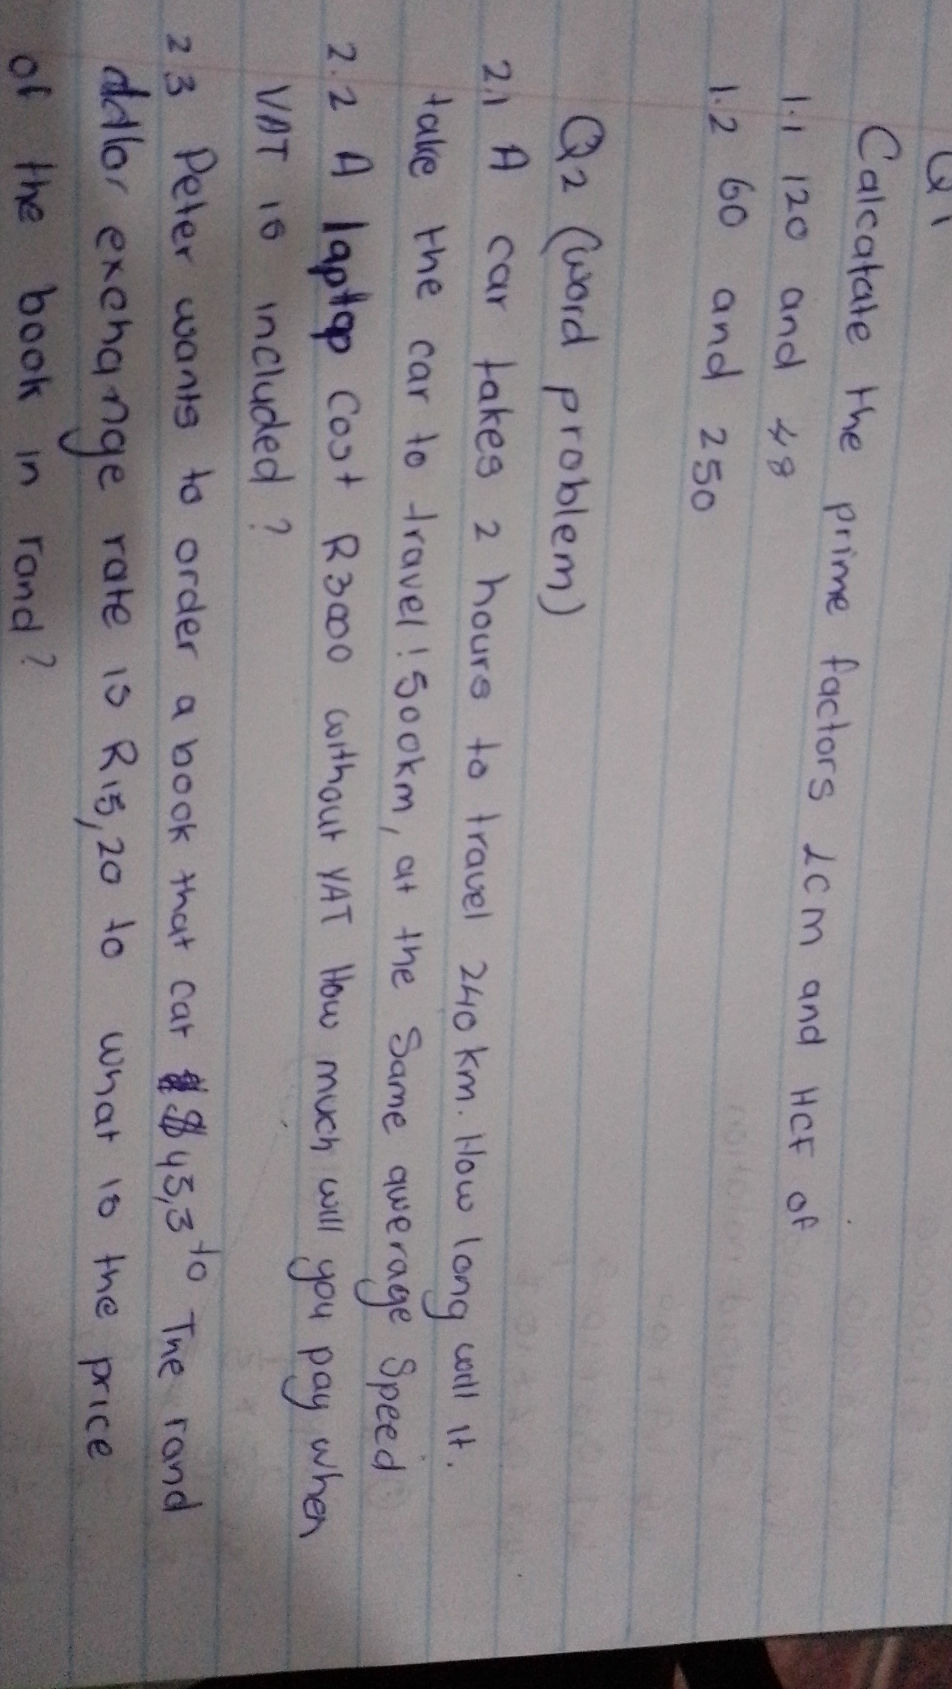 Q1
Calcatate the prime factors LCM and HCF of
1.1 120 and 48
1.2 60 and 250
Q2 (word problem)
2.1 A car takes 2 hours to travel 240 km. How long will it.
take the car to travel 1500km, at the same average speed
2.2 A laptop cost R3000 without VAT How much will you pay when
VAT is included?
2 3 Peter wants to order a book that cat $45,3 to The rand
dollor exchange rate is R15,20 to what is the price
of the book in rand?